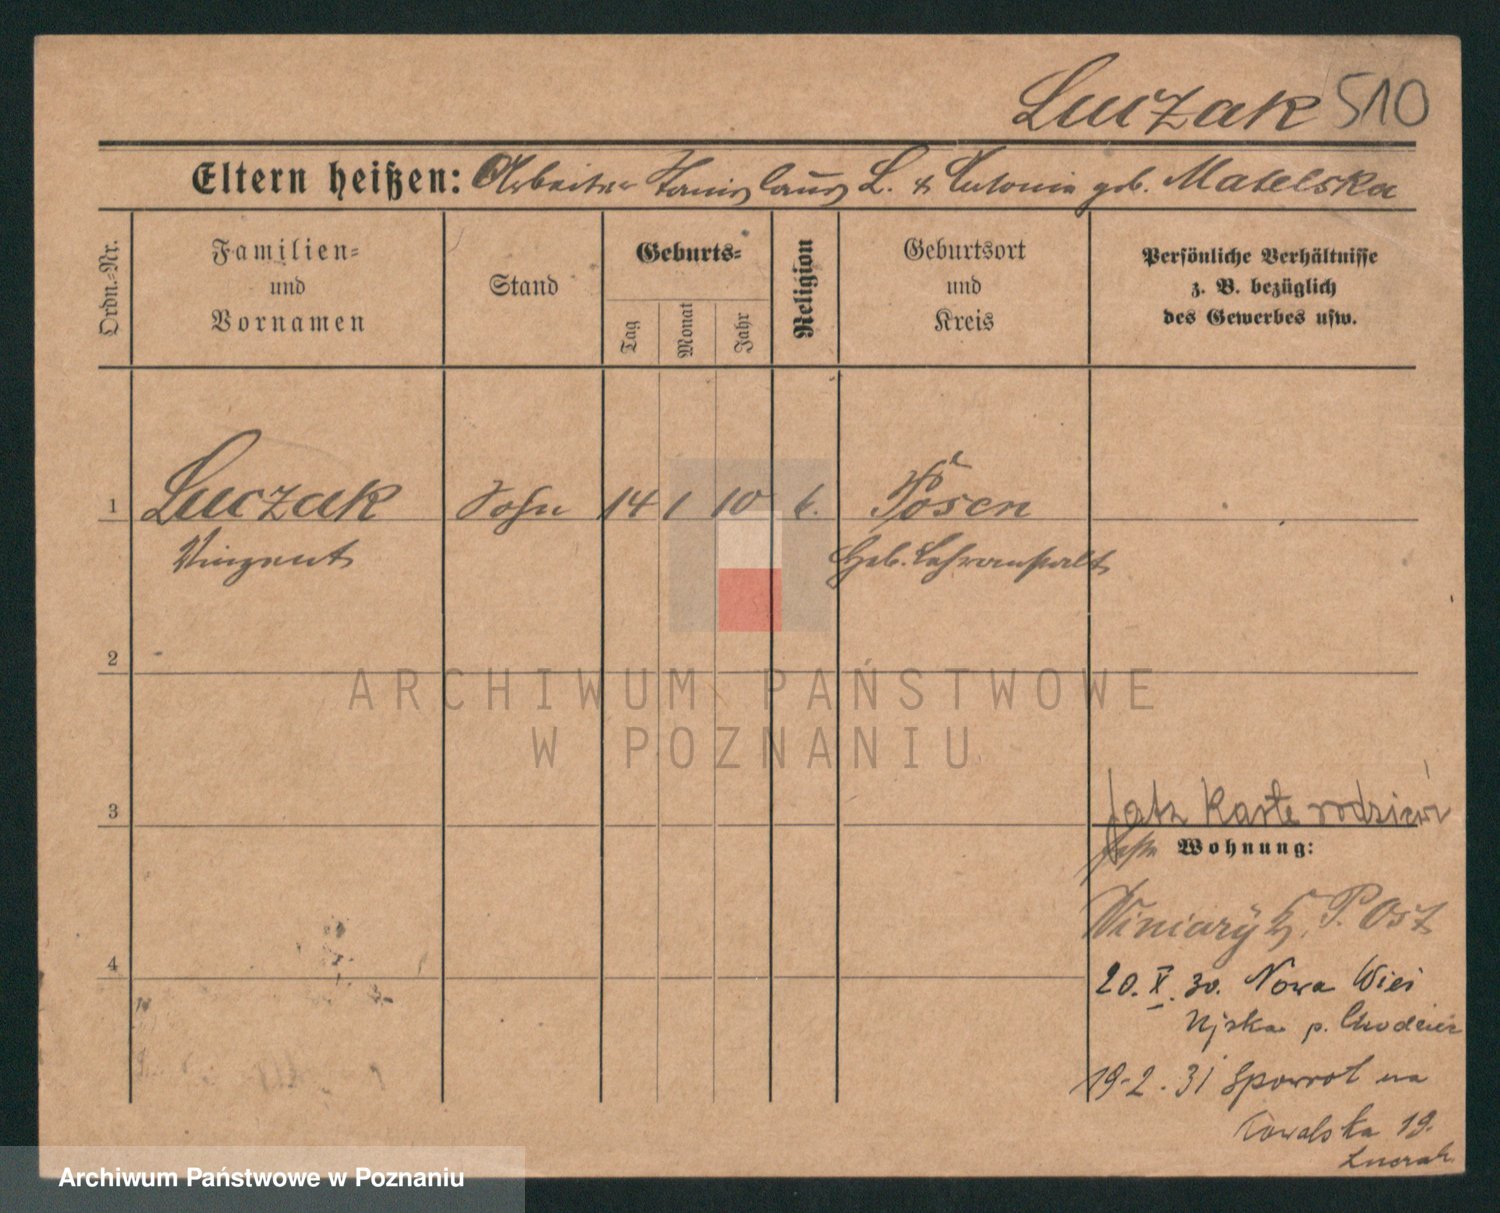 Luczak 510
Eltern heißen: Arbeiter Stanislaus L. & Antonie geb. Matelska
Ordn.-Nr.
Familien-
und
Vornamen
Stand
Geburts-
Tag
Monat
Jahr
Religion
Geburtsort
und
Kreis
Persönliche Verhältnisse
z. B. bezüglich
des Gewerbes usw.
1 Luczak Sohn 14 1 10 k. Posen
Vinzent Heb. Lehranstalt
2
3
Karte rodziców
Wohnung:
Winiary P. Ost
4
20. X. 30. Nowa Wieś
Ujska p. Chodzież
19-2.31 Spowrot na
Kowalska 19.
Luczak
ARCHIWUM PAŃSTWOWE
W POZNANIU
Archiwum Państwowe w Poznaniu